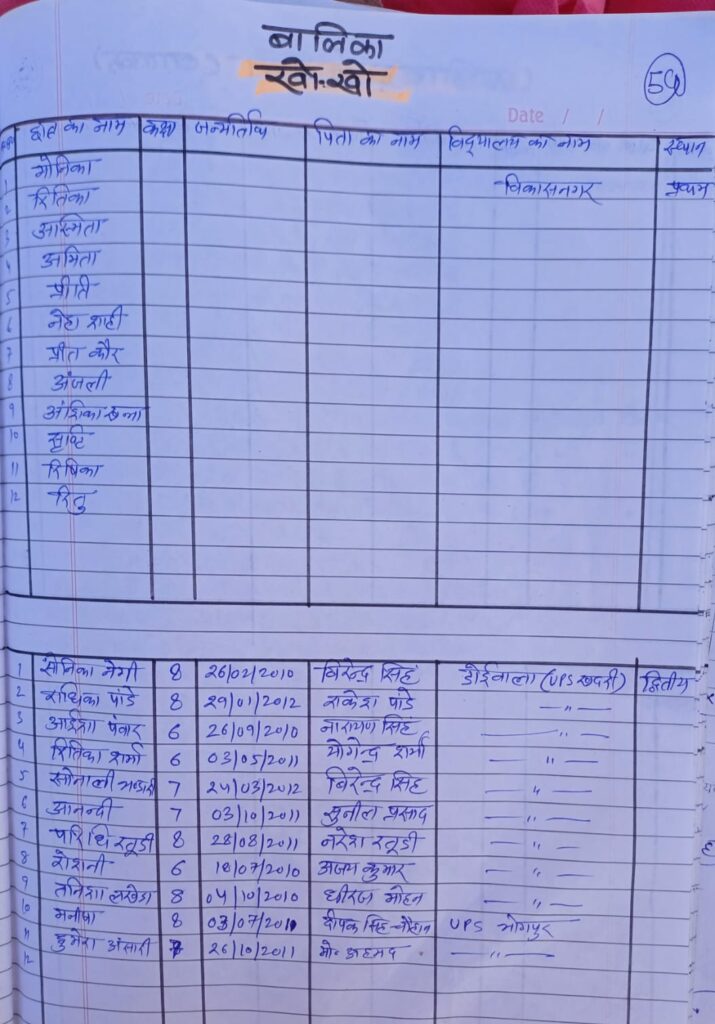 बालिका
खो-खो
59
Date / /
छात्र का नाम कक्षा जन्मतिथि पिता का नाम विद्यालय का नाम स्थान
1 मोनिका विकासनगर प्रथम
2 रितिका
3 आस्मिता
4 अमिता
5 प्रीति
6 नेहा शाही
7 प्रीत कौर
8 अंजली
9 अंशिका
10 सृष्टि
11 रिषिका
12 रितु
1 सोनिका नेगी 8 26/02/2010 बिरेन्द्र सिंह डोईवाला (UPS खदरी) द्वितीय
2 राधिका पांडे 8 29/01/2012 राकेश पांडे -〃-
3 आईशा पंवार 6 26/09/2010 नारायण सिंह -〃-
4 रितिका शर्मा 6 03/05/2011 योगेन्द्र शर्मा -〃-
5 सोनाली भण्डारी 7 24/03/2012 बिरेन्द्र सिंह -〃-
6 आनन्दी 7 03/10/2011 सुनील प्रसाद -〃-
7 परिधि रतूडी 8 28/08/2011 नरेश रतूडी -〃-
8 रोशनी 6 18/07/2010 अजय कुमार -〃-
9 तनिशा लखेडा 8 04/10/2010 धीरज मोहन -〃-
10 मनीषा 8 03/07/2010 दीपक सिंह चौहान UPS भोगपुर
11 हुमेरा अंसारी 7 26/10/2011 मो० अहमद -〃-
12